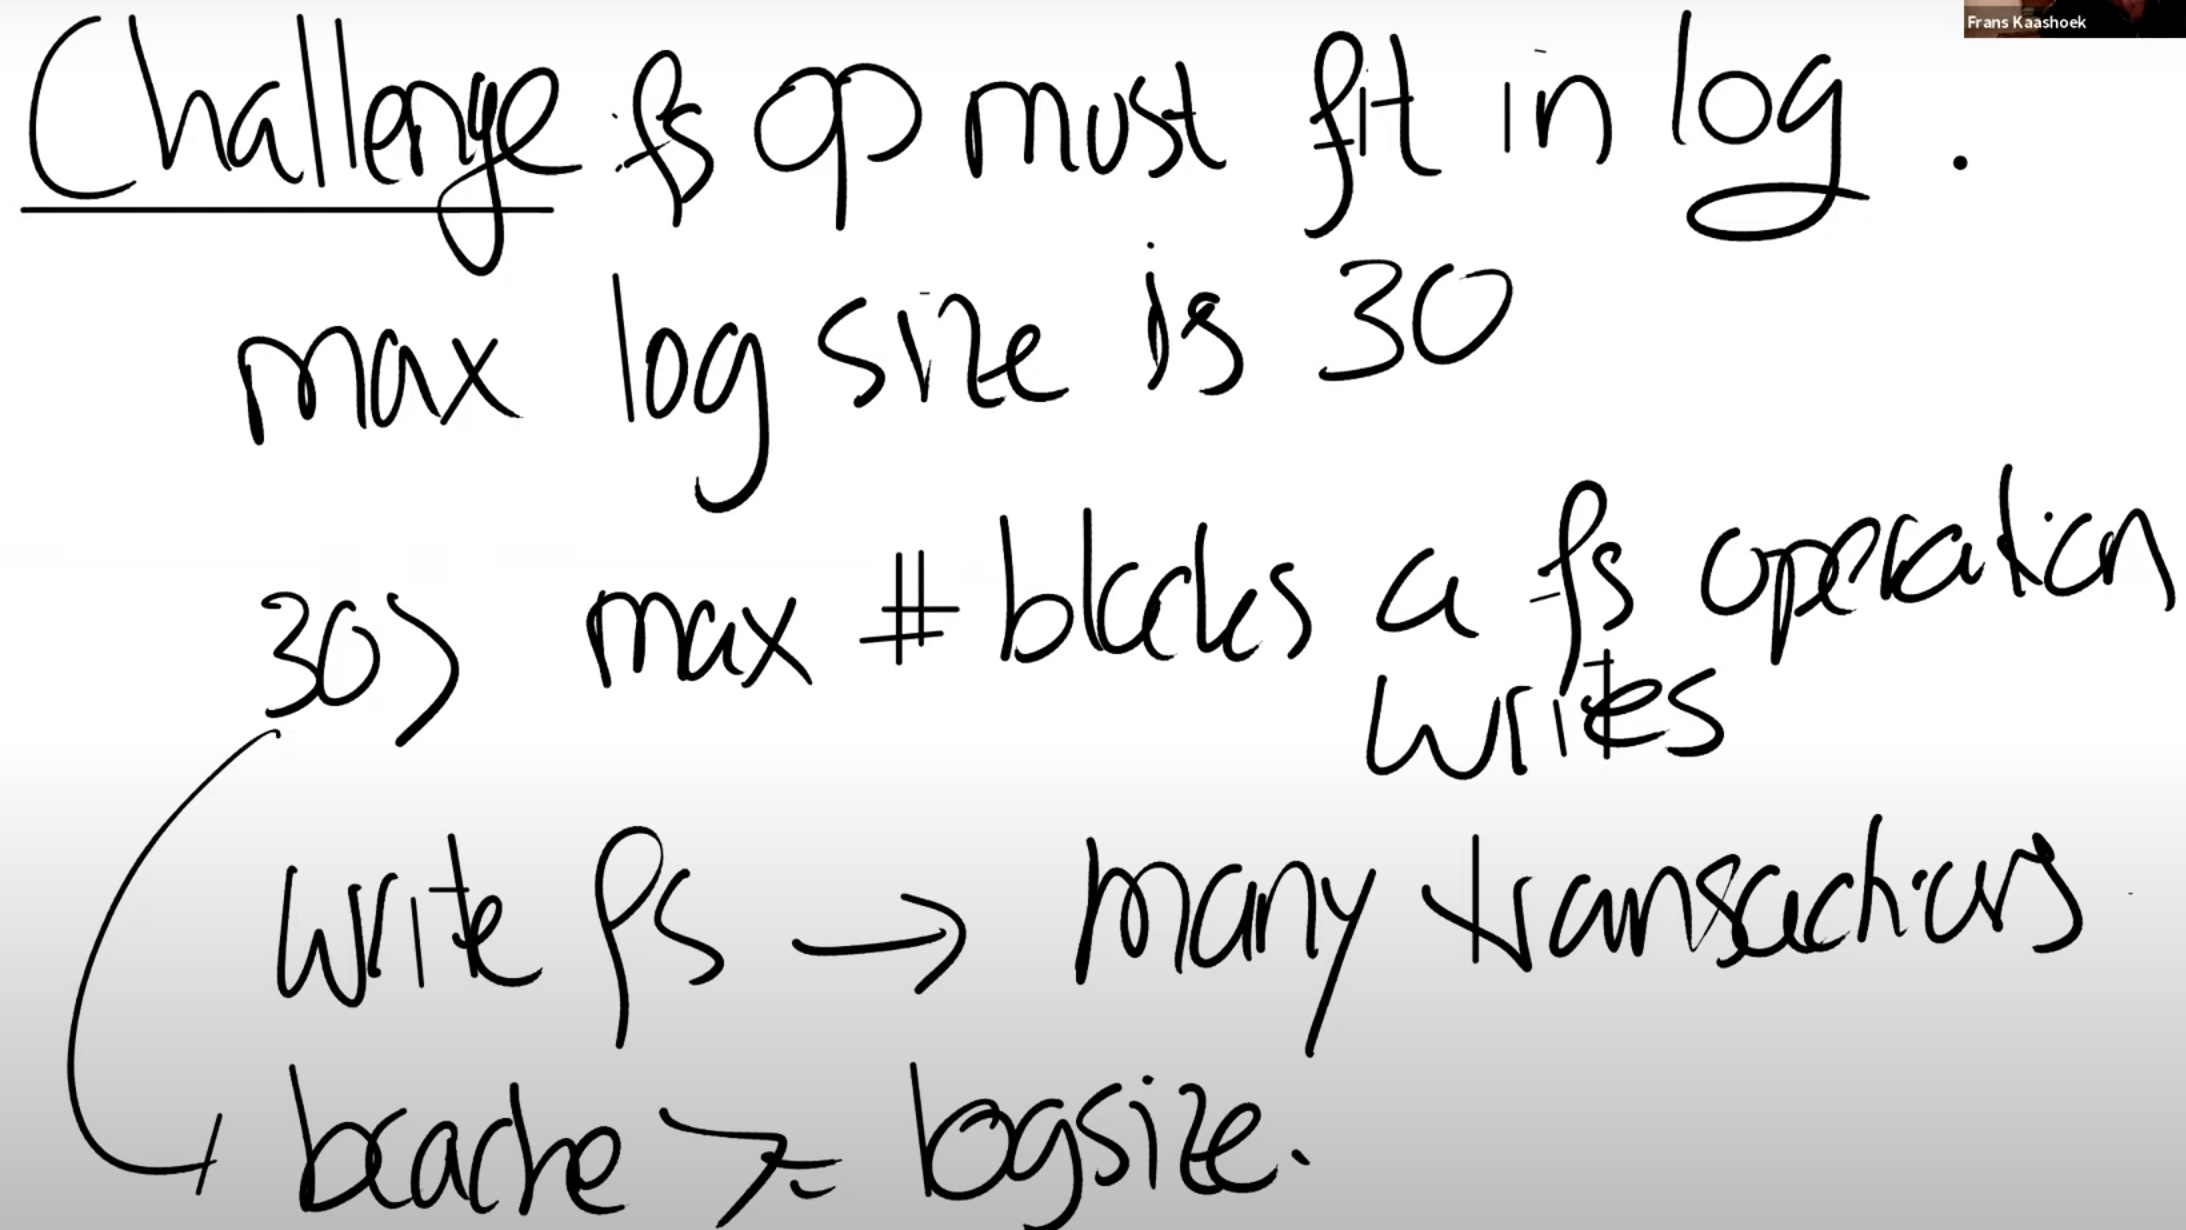 Frans Kaashoek
Challenge: fs op must fit in log.
max log size is 30
30 > max # blocks a fs operation
writes
write fs → many transactions
bcache >= logsize.